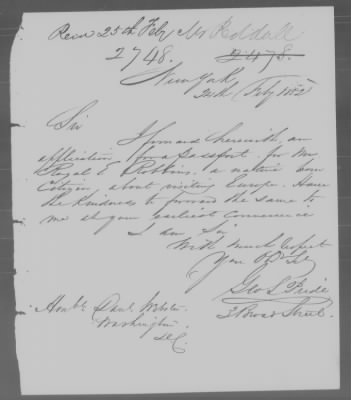 Recd 25th Feby Mr Reddall
2748. 2478.
New York
24th Feby 1852
Sir
I forward herewith, an
application for a Passport for Mr
Royal E Robbins, a native born
Citizen, about visiting Europe. Have
the kindness to forward the same to
me at your earliest convenience
I am, Sir
With much respect
Your Ob St
Geo S Pride
Broad Street.
Honble Danl Webster.
Washington
DC.